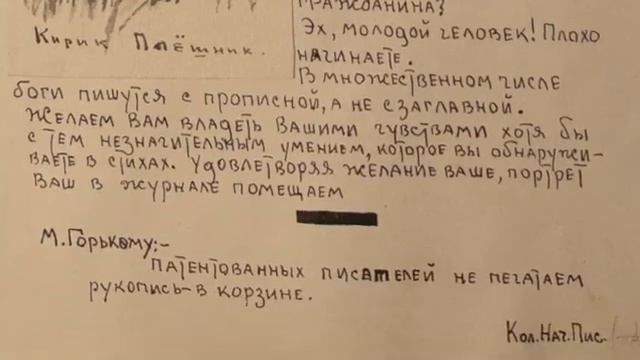 Кирик Плёшник.
гражданина?
Эх, молодой человек! Плохо
начинаете.
В множественном числе
боги пишутся с прописной, а не с заглавной.
Желаем вам владеть вашими чувствами хотя бы
с тем незначительным умением, которое вы обнаружи-
ваете в стихах. Удовлетворяя желание ваше, портрет
ваш в журнале помещаем
М. Горькому:-
Патентованных писателей не печатаем
рукопись-в корзине.
Кол. Нач. Пис.